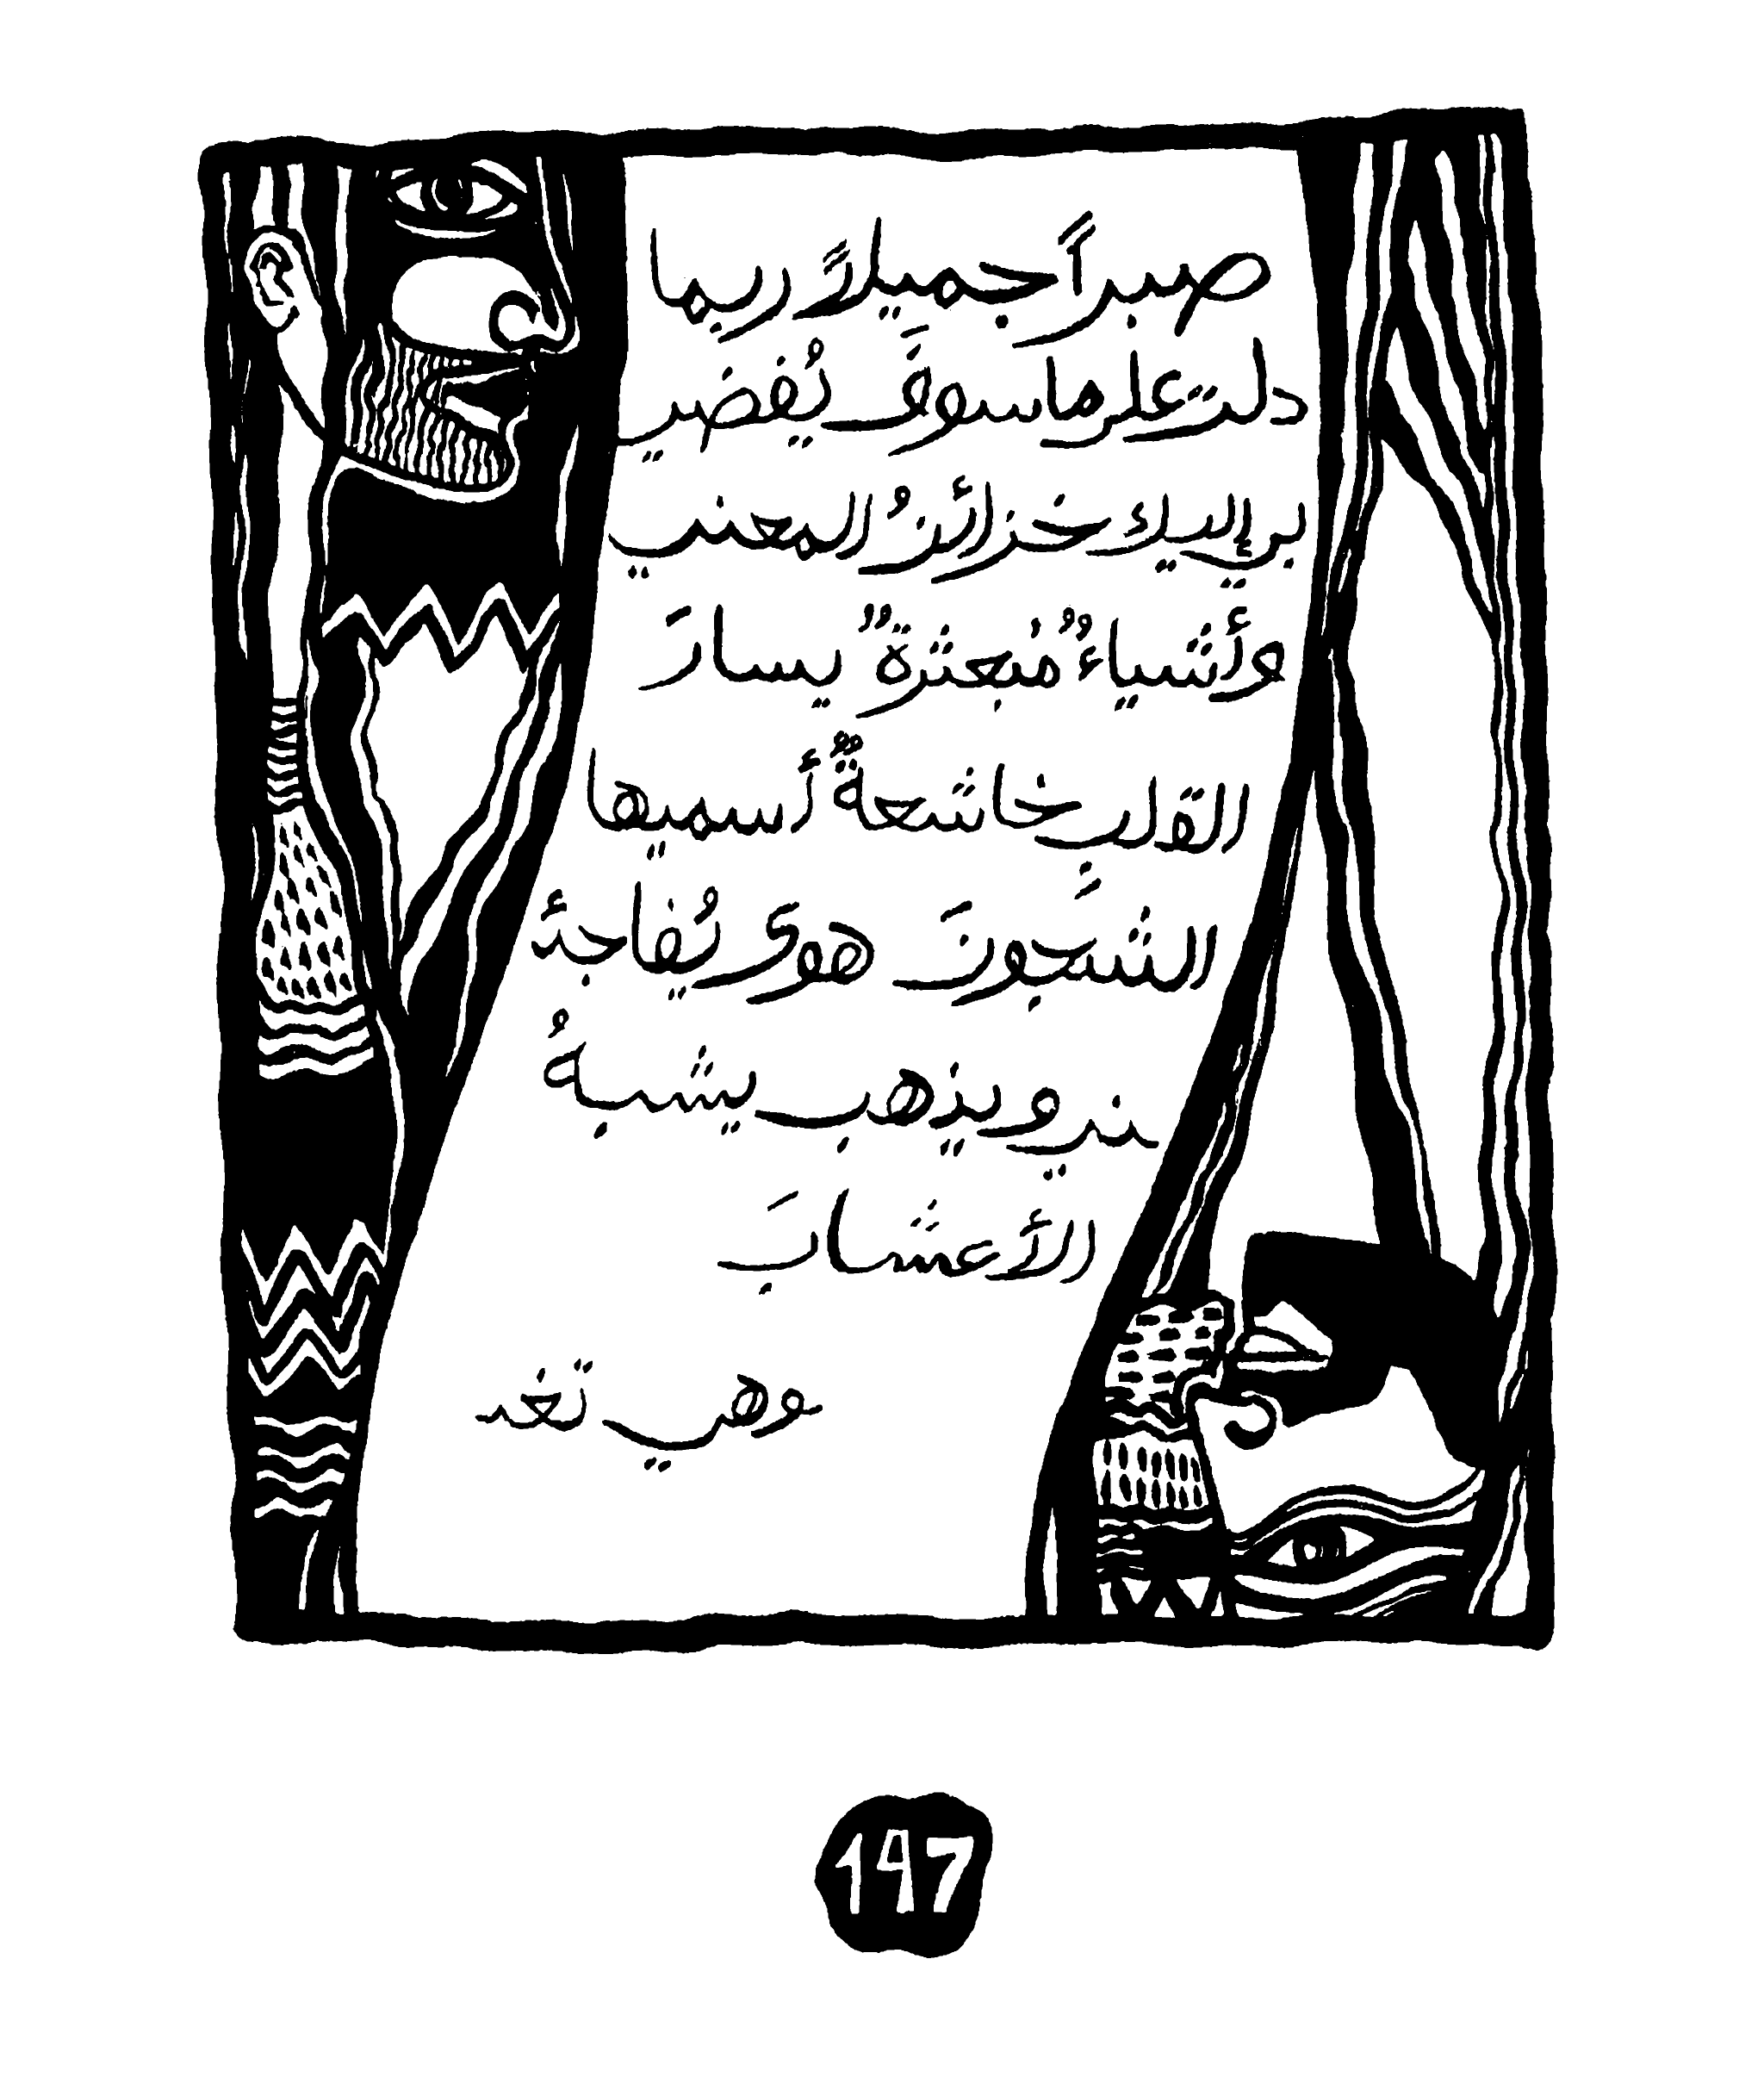 صبراً جميلاً ربما
دلت على ما سوفَ يُفضي
بي إليك خزائنُ المعنى
وأشياءُ مُبعثرةٌ يسارَ
القلبِ خاشعةٌ أسميها
الشجونَ هوى يُفاجئُ
ني ويذهب يشبهُ
الأعشابَ
وهي تَغـ
147